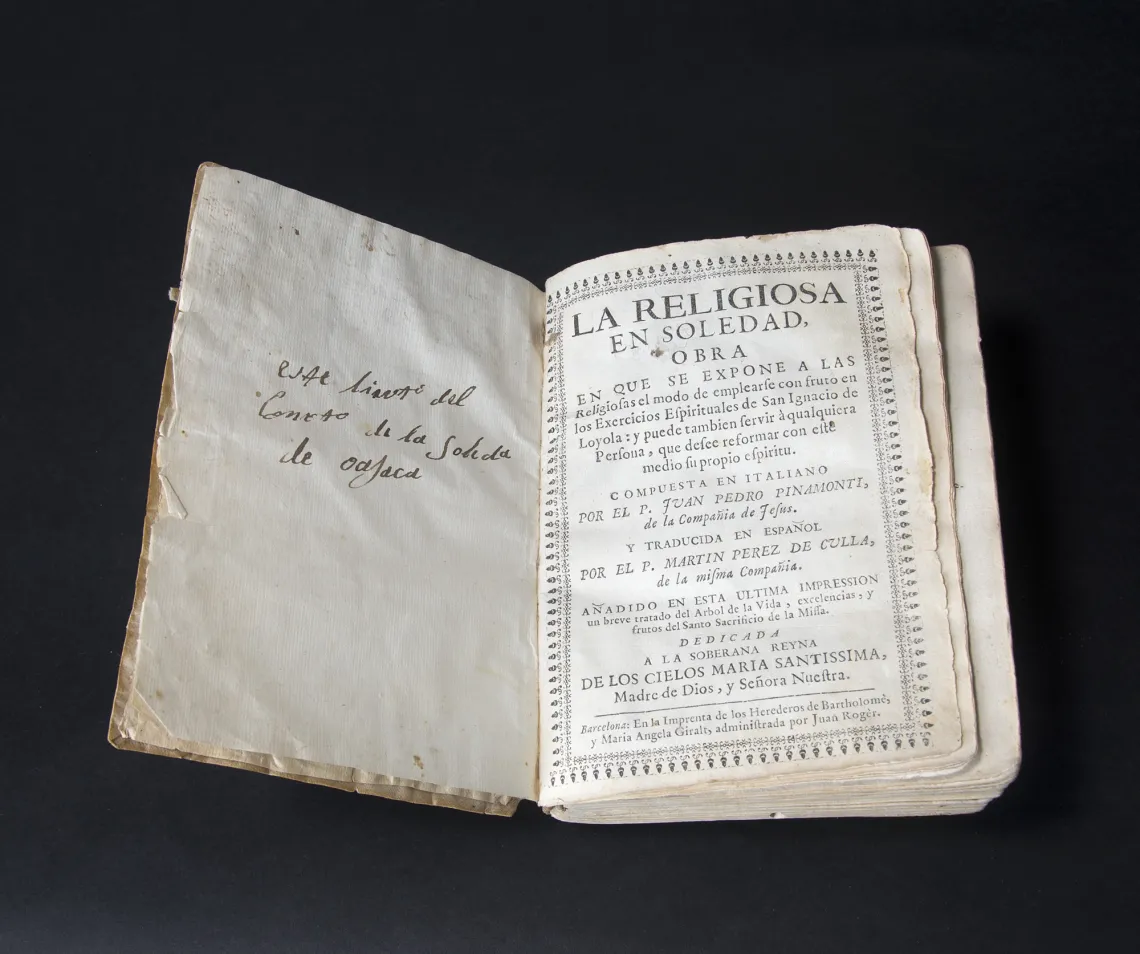 este libro es del
Conv.to de la Soleda
de oajaca
LA RELIGIOSA
EN SOLEDAD,
OBRA
EN QUE SE EXPONE A LAS
Religiosas el modo de emplearſe con fruto en
los Exercicios Eſpirituales de San Ignacio de
Loyola: y puede tambien ſervir à qualquiera
Perſona, que deſee reformar con eſte
medio ſu propio eſpiritu.
COMPUESTA EN ITALIANO
POR EL P. JUAN PEDRO PINAMONTI,
de la Compañia de Jeſus.
Y TRADUCIDA EN ESPAÑOL
POR EL P. MARTIN PEREZ DE CULLA,
de la miſma Compañia.
AÑADIDO EN ESTA ULTIMA IMPRESSION
un breve tratado del Arbol de la Vida, excelencias, y
frutos del Santo Sacrificio de la Miſſa.
DEDICADA
A LA SOBERANA REYNA
DE LOS CIELOS MARIA SANTISSIMA,
Madre de Dios, y Señora Nueſtra.
Barcelona: En la Imprenta de los Herederos de Bartholomè,
y Maria Angela Giralt, adminiſtrada por Juan Rogèr.